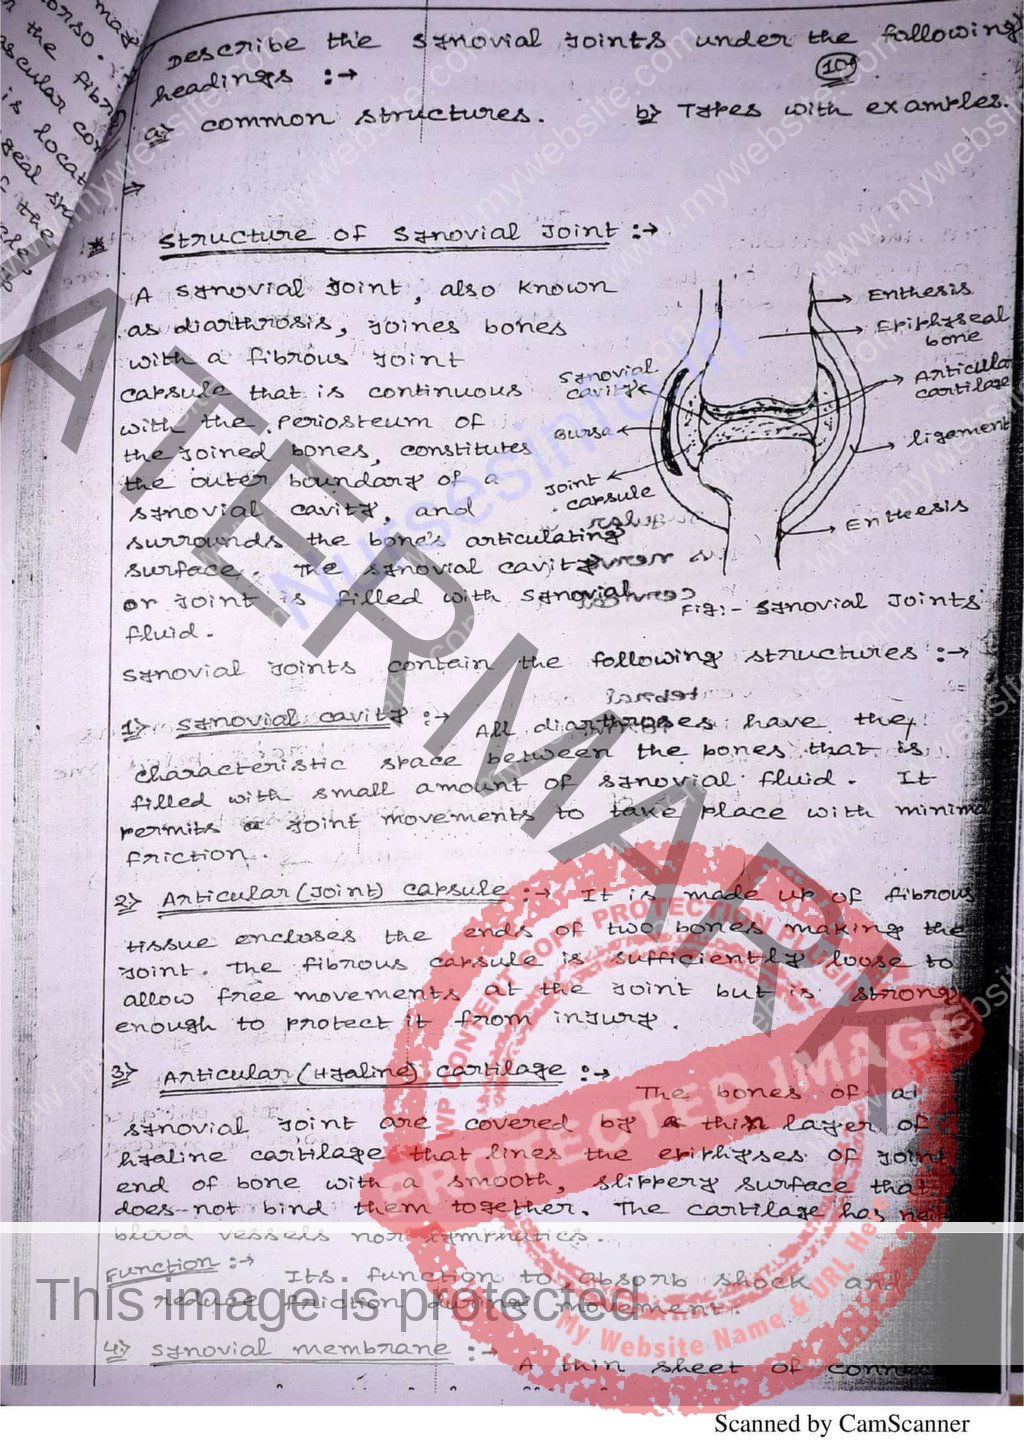 Describe the synovial joints under the following
headings :→ 10
a) common structures. b) Types with examples.
⇒
* Structure of Synovial Joint :→
A synovial joint, also known
as diarthrosis, joines bones
with a fibrous joint
capsule that is continuous
with the periosteum of
the joined bones, constitutes
the outer boundary of a
synovial cavity, and
surrounds the bone's articulating
surface. The synovial cavity
or joint is filled with synovial
fluid.
Enthesis
Epiphyseal
bone
Articular
cartilage
ligament
Enthesis
Synovial
cavity
Bursa
Joint
capsule
Fig:- Synovial Joints
Synovial joints contain the following structures :→
1) Synovial cavity :→ All diarthroses have the
characteristic space between the bones that is
filled with small amount of synovial fluid. It
permits a joint movements to take place with minima
friction.
2) Articular (Joint) capsule :→ It is made up of fibrous
tissue encloses the ends of two bones making the
joint. The fibrous capsule is sufficiently loose to
allow free movements at the joint but is strong
enough to protect it from injury.
3) Articular (Hyaline) cartilage :→ The bones of a
synovial joint are covered by a thin layer of
hyaline cartilage that lines the epiphyses of joint
end of bone with a smooth, slippery surface that
does not bind them together. The cartilage has not
blood vessels nor lymphatics.
Function :→ Its function to absorb shock and
reduce friction during movement.
4) Synovial membrane :→ A thin sheet of conne
WATERMARK
www.mywebsite.com
Nursesinfo.in
WP CONTENT COPY PROTECTION PLUGIN
PROTECTED IMAGE
My Website Name & URL Here
This image is protected
Scanned by CamScanner